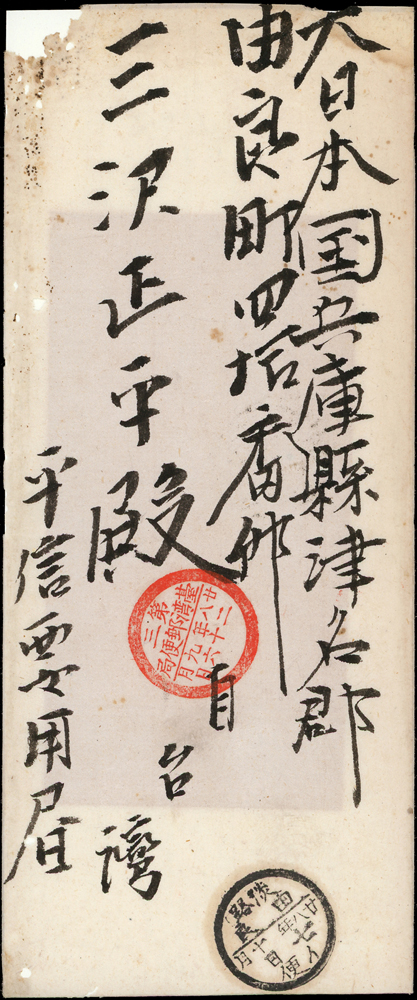 大日本国兵庫縣津名郡
由良町四拾番邸
三沢正平殿
自台湾
平信要用届
臺灣郵便局
第三
廿八年九月
二十六日
淡路
由良
廿八年
十月
七日